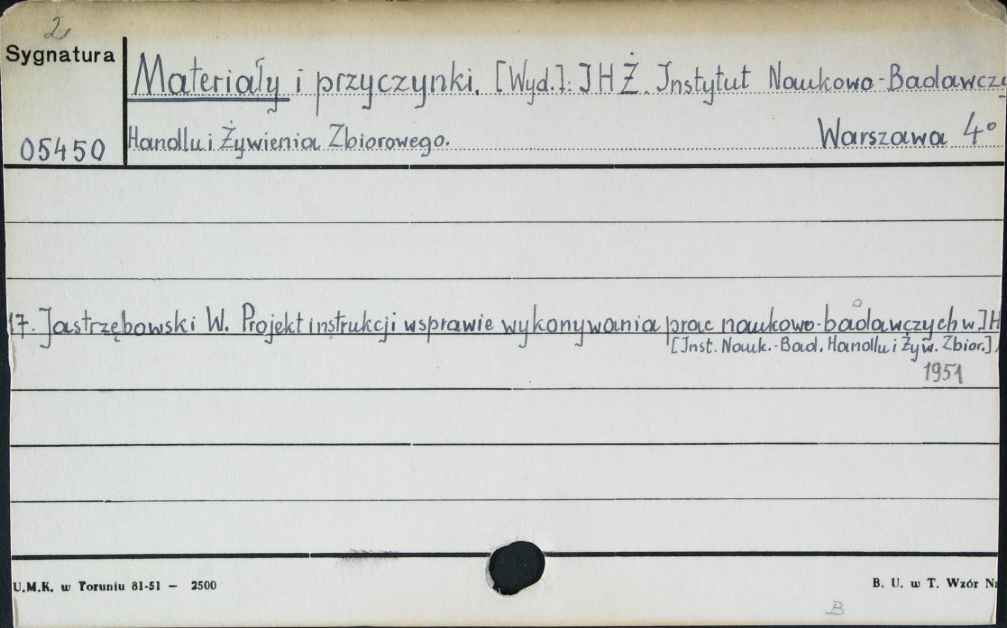 2
Sygnatura
Materiały i przyczynki. [Wyd.]: IHŻ. Instytut Naukowo-Badawcz
05450
Handlu i Żywienia Zbiorowego. Warszawa 4°
17. Jastrzębowski W. Projekt instrukcji wsprawie wykonywania prac naukowo-badawczych w IH
[Inst. Nauk.-Bad. Handlu i Żyw. Zbior.]
1951
U.M.K. w Toruniu 81-51 — 2500
B. U. w T. Wzór N
B